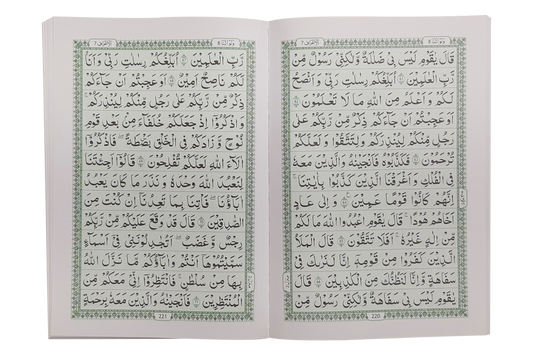 ولواننا ٨
الاعراف ٧
قَالَ يٰقَوْمِ لَيْسَ بِيْ ضَلٰلَةٌ وَّلٰكِنِّيْ رَسُوْلٌ مِّنْ
رَّبِّ الْعٰلَمِيْنَ ۝ اُبَلِّغُكُمْ رِسٰلٰتِ رَبِّيْ وَاَنْصَحُ
لَكُمْ وَاَعْلَمُ مِنَ اللّٰهِ مَا لَا تَعْلَمُوْنَ ۝
اَوَعَجِبْتُمْ اَنْ جَآءَكُمْ ذِكْرٌ مِّنْ رَّبِّكُمْ عَلٰى
رَجُلٍ مِّنْكُمْ لِيُنْذِرَكُمْ وَلِتَتَّقُوْا وَلَعَلَّكُمْ
تُرْحَمُوْنَ ۝ فَكَذَّبُوْهُ فَاَنْجَيْنٰهُ وَالَّذِيْنَ مَعَهٗ
فِي الْفُلْكِ وَاَغْرَقْنَا الَّذِيْنَ كَذَّبُوْا بِاٰيٰتِنَا ؕ
اِنَّهُمْ كَانُوْا قَوْمًا عَمِيْنَ ۝ وَاِلٰى عَادٍ
اَخَاهُمْ هُوْدًا ؕ قَالَ يٰقَوْمِ اعْبُدُوا اللّٰهَ مَا لَكُمْ
مِّنْ اِلٰهٍ غَيْرُهٗ ؕ اَفَلَا تَتَّقُوْنَ ۝ قَالَ الْمَلَاُ
الَّذِيْنَ كَفَرُوْا مِنْ قَوْمِهٖٓ اِنَّا لَنَرٰىكَ فِيْ
سَفَاهَةٍ وَّاِنَّا لَنَظُنُّكَ مِنَ الْكٰذِبِيْنَ ۝ قَالَ
يٰقَوْمِ لَيْسَ بِيْ سَفَاهَةٌ وَّلٰكِنِّيْ رَسُوْلٌ مِّنْ
220
ولواننا ٨
الاعراف ٧
رَّبِّ الْعٰلَمِيْنَ ۝ اُبَلِّغُكُمْ رِسٰلٰتِ رَبِّيْ وَاَنَا
لَكُمْ نَاصِحٌ اَمِيْنٌ ۝ اَوَعَجِبْتُمْ اَنْ جَآءَكُمْ
ذِكْرٌ مِّنْ رَّبِّكُمْ عَلٰى رَجُلٍ مِّنْكُمْ لِيُنْذِرَكُمْ ؕ
وَاذْكُرُوْٓا اِذْ جَعَلَكُمْ خُلَفَآءَ مِنْۢ بَعْدِ قَوْمِ
نُوْحٍ وَّزَادَكُمْ فِي الْخَلْقِ بَصْۜطَةً ۚ فَاذْكُرُوْٓا
اٰلَآءَ اللّٰهِ لَعَلَّكُمْ تُفْلِحُوْنَ ۝ قَالُوْٓا اَجِئْتَنَا
لِنَعْبُدَ اللّٰهَ وَحْدَهٗ وَنَذَرَ مَا كَانَ يَعْبُدُ
اٰبَآؤُنَا ۚ فَاْتِنَا بِمَا تَعِدُنَآ اِنْ كُنْتَ مِنَ
الصّٰدِقِيْنَ ۝ قَالَ قَدْ وَقَعَ عَلَيْكُمْ مِّنْ رَّبِّكُمْ
رِجْسٌ وَّغَضَبٌ ؕ اَتُجَادِلُوْنَنِيْ فِيْٓ اَسْمَآءٍ
سَمَّيْتُمُوْهَآ اَنْتُمْ وَاٰبَآؤُكُمْ مَّا نَزَّلَ اللّٰهُ
بِهَا مِنْ سُلْطٰنٍ ؕ فَانْتَظِرُوْٓا اِنِّيْ مَعَكُمْ مِّنَ
الْمُنْتَظِرِيْنَ ۝ فَاَنْجَيْنٰهُ وَالَّذِيْنَ مَعَهٗ بِرَحْمَةٍ
221